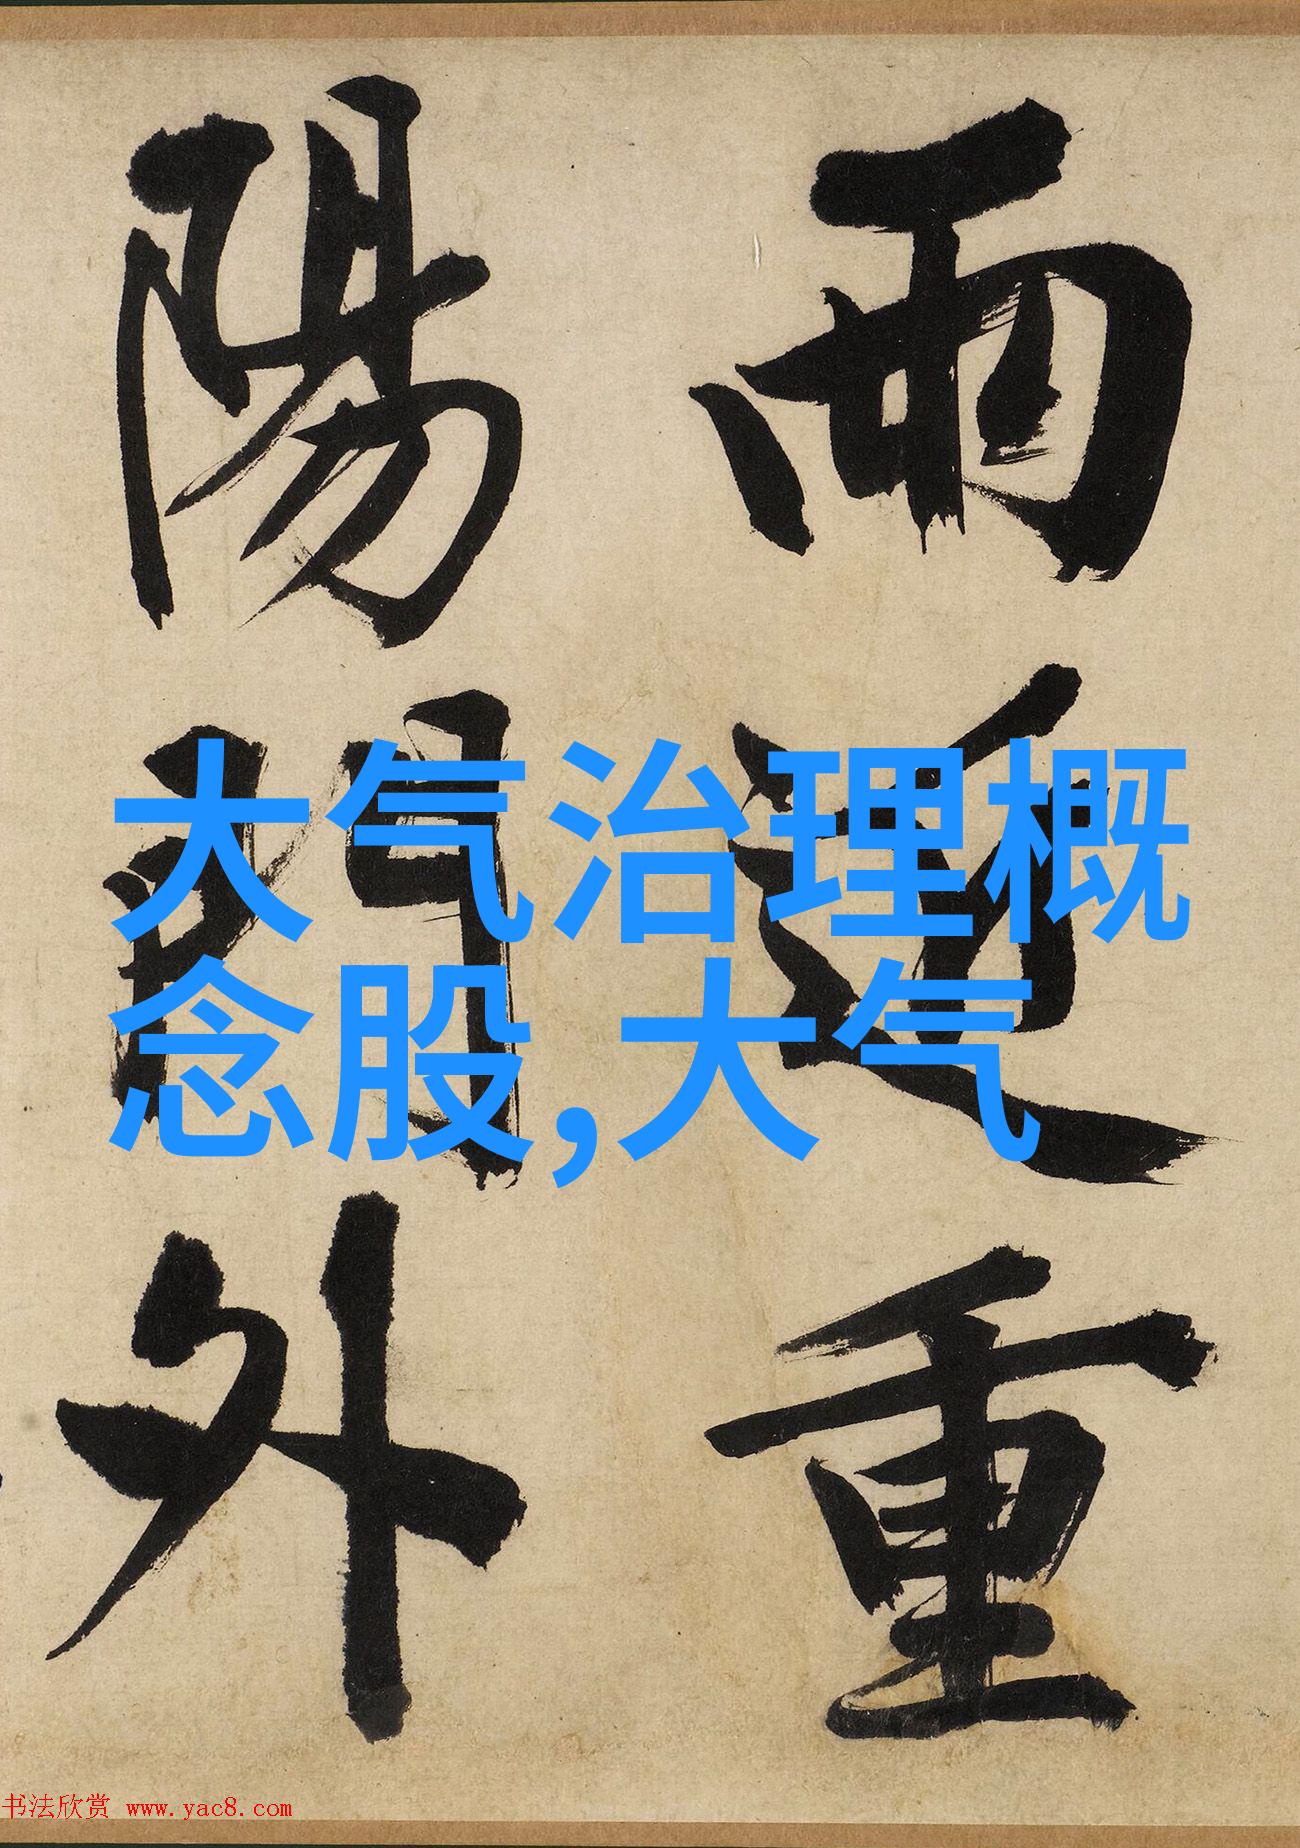 雨重
陽門外
大气治理概
念股,大气
书法欣赏 www.yac8.com